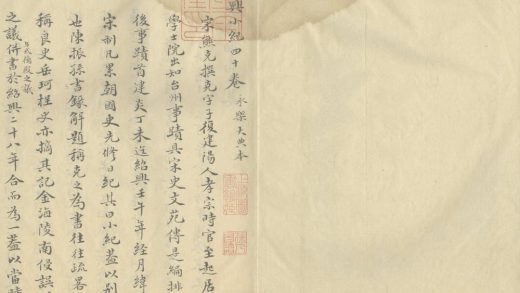 興小紀四十卷 永樂大典本
宋熊克撰克字子復建陽人孝宗時官至起居
學士院出知台州事蹟具宋史文苑傳是編排
後事蹟首建炎丁未迄紹興壬午年經月緯
宋制凡累朝國史先修日紀其曰小紀蓋以別
也陳振孫書錄解題稱克之為書往往疏畧
稱良史岳珂桯史亦摘其記金海陵南侵誤
之議與武德殿之議併書於紹興二十八年合而為一蓋以當時